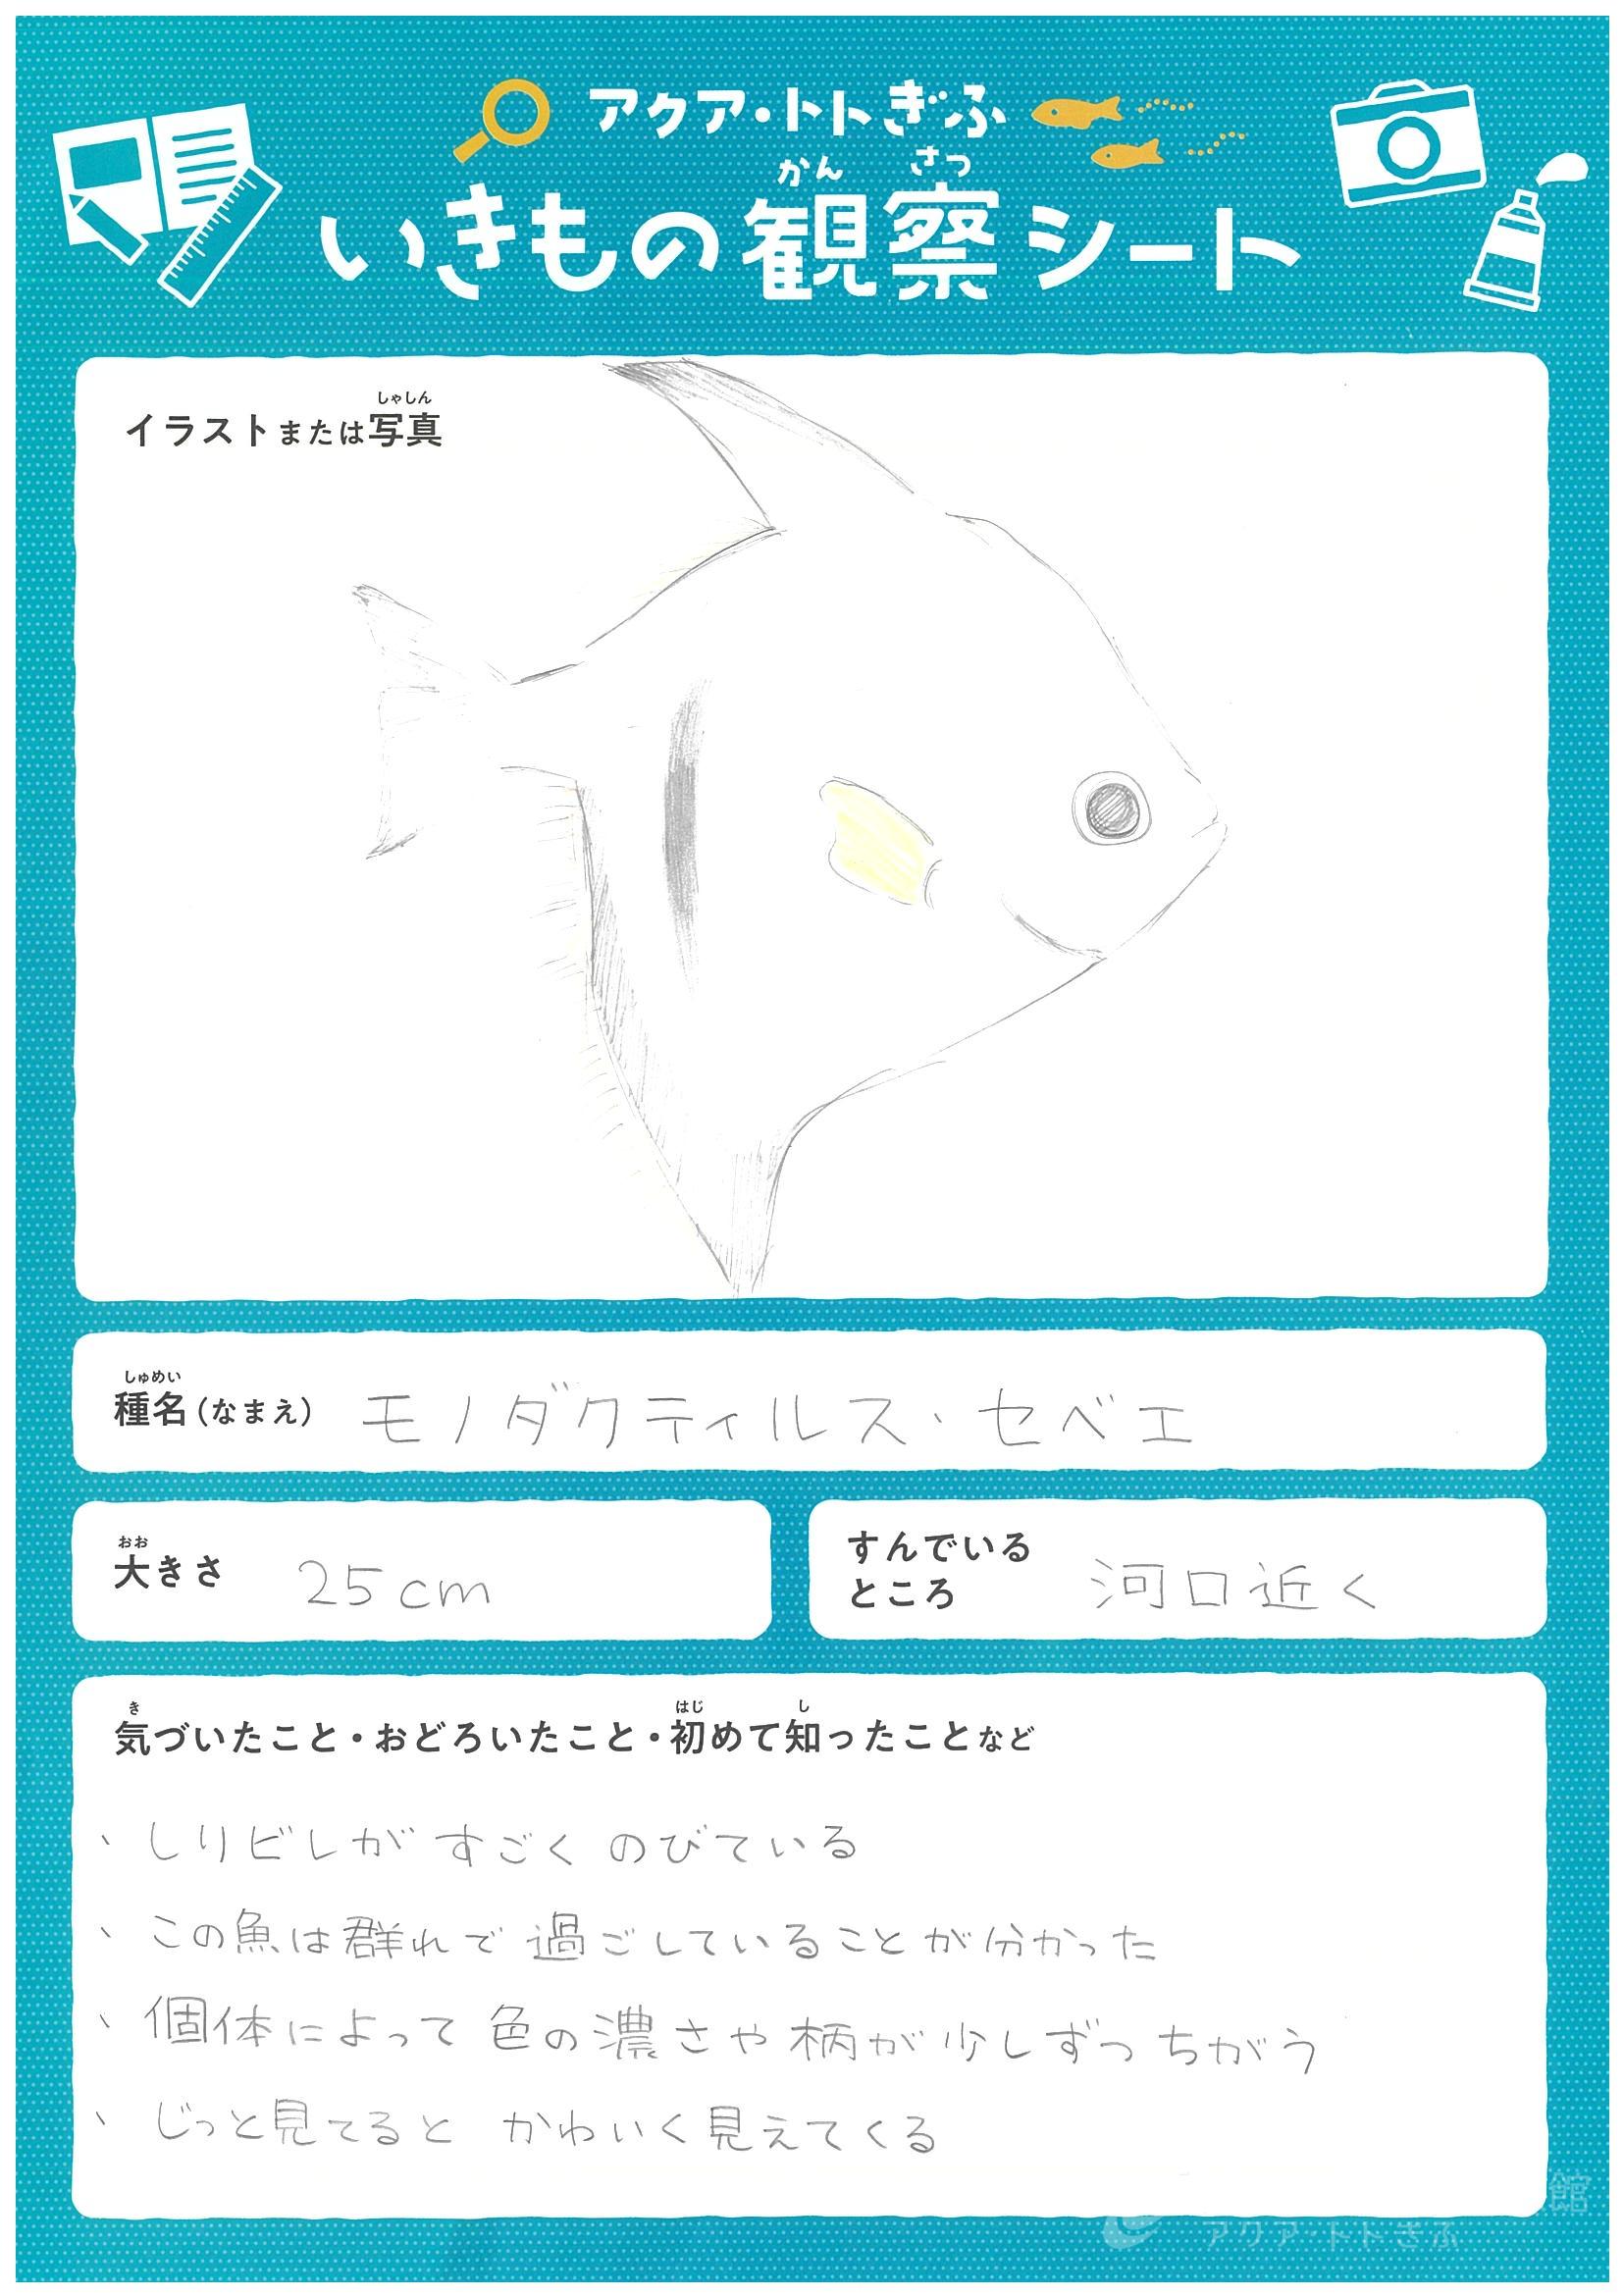 アクア・トトぎふ
かんさつ
いきもの観察シート
しゃしん
イラストまたは写真
しゅめい
種名(なまえ) モノダクティルス・セベエ
おお
大きさ 25cm
すんでいる
ところ 河口近く
き はじ し
気づいたこと・おどろいたこと・初めて知ったことなど
、しりビレがすごくのびている
、この魚は群れで過ごしていることが分かった
、個体によって色の濃さや柄が少しずつちがう
、じっと見てるとかわいく見えてくる
館
アクア・トトぎふ